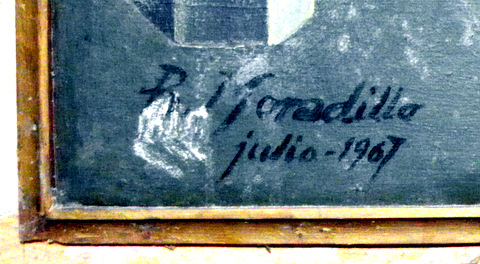 R. Moradillo
julio-1967